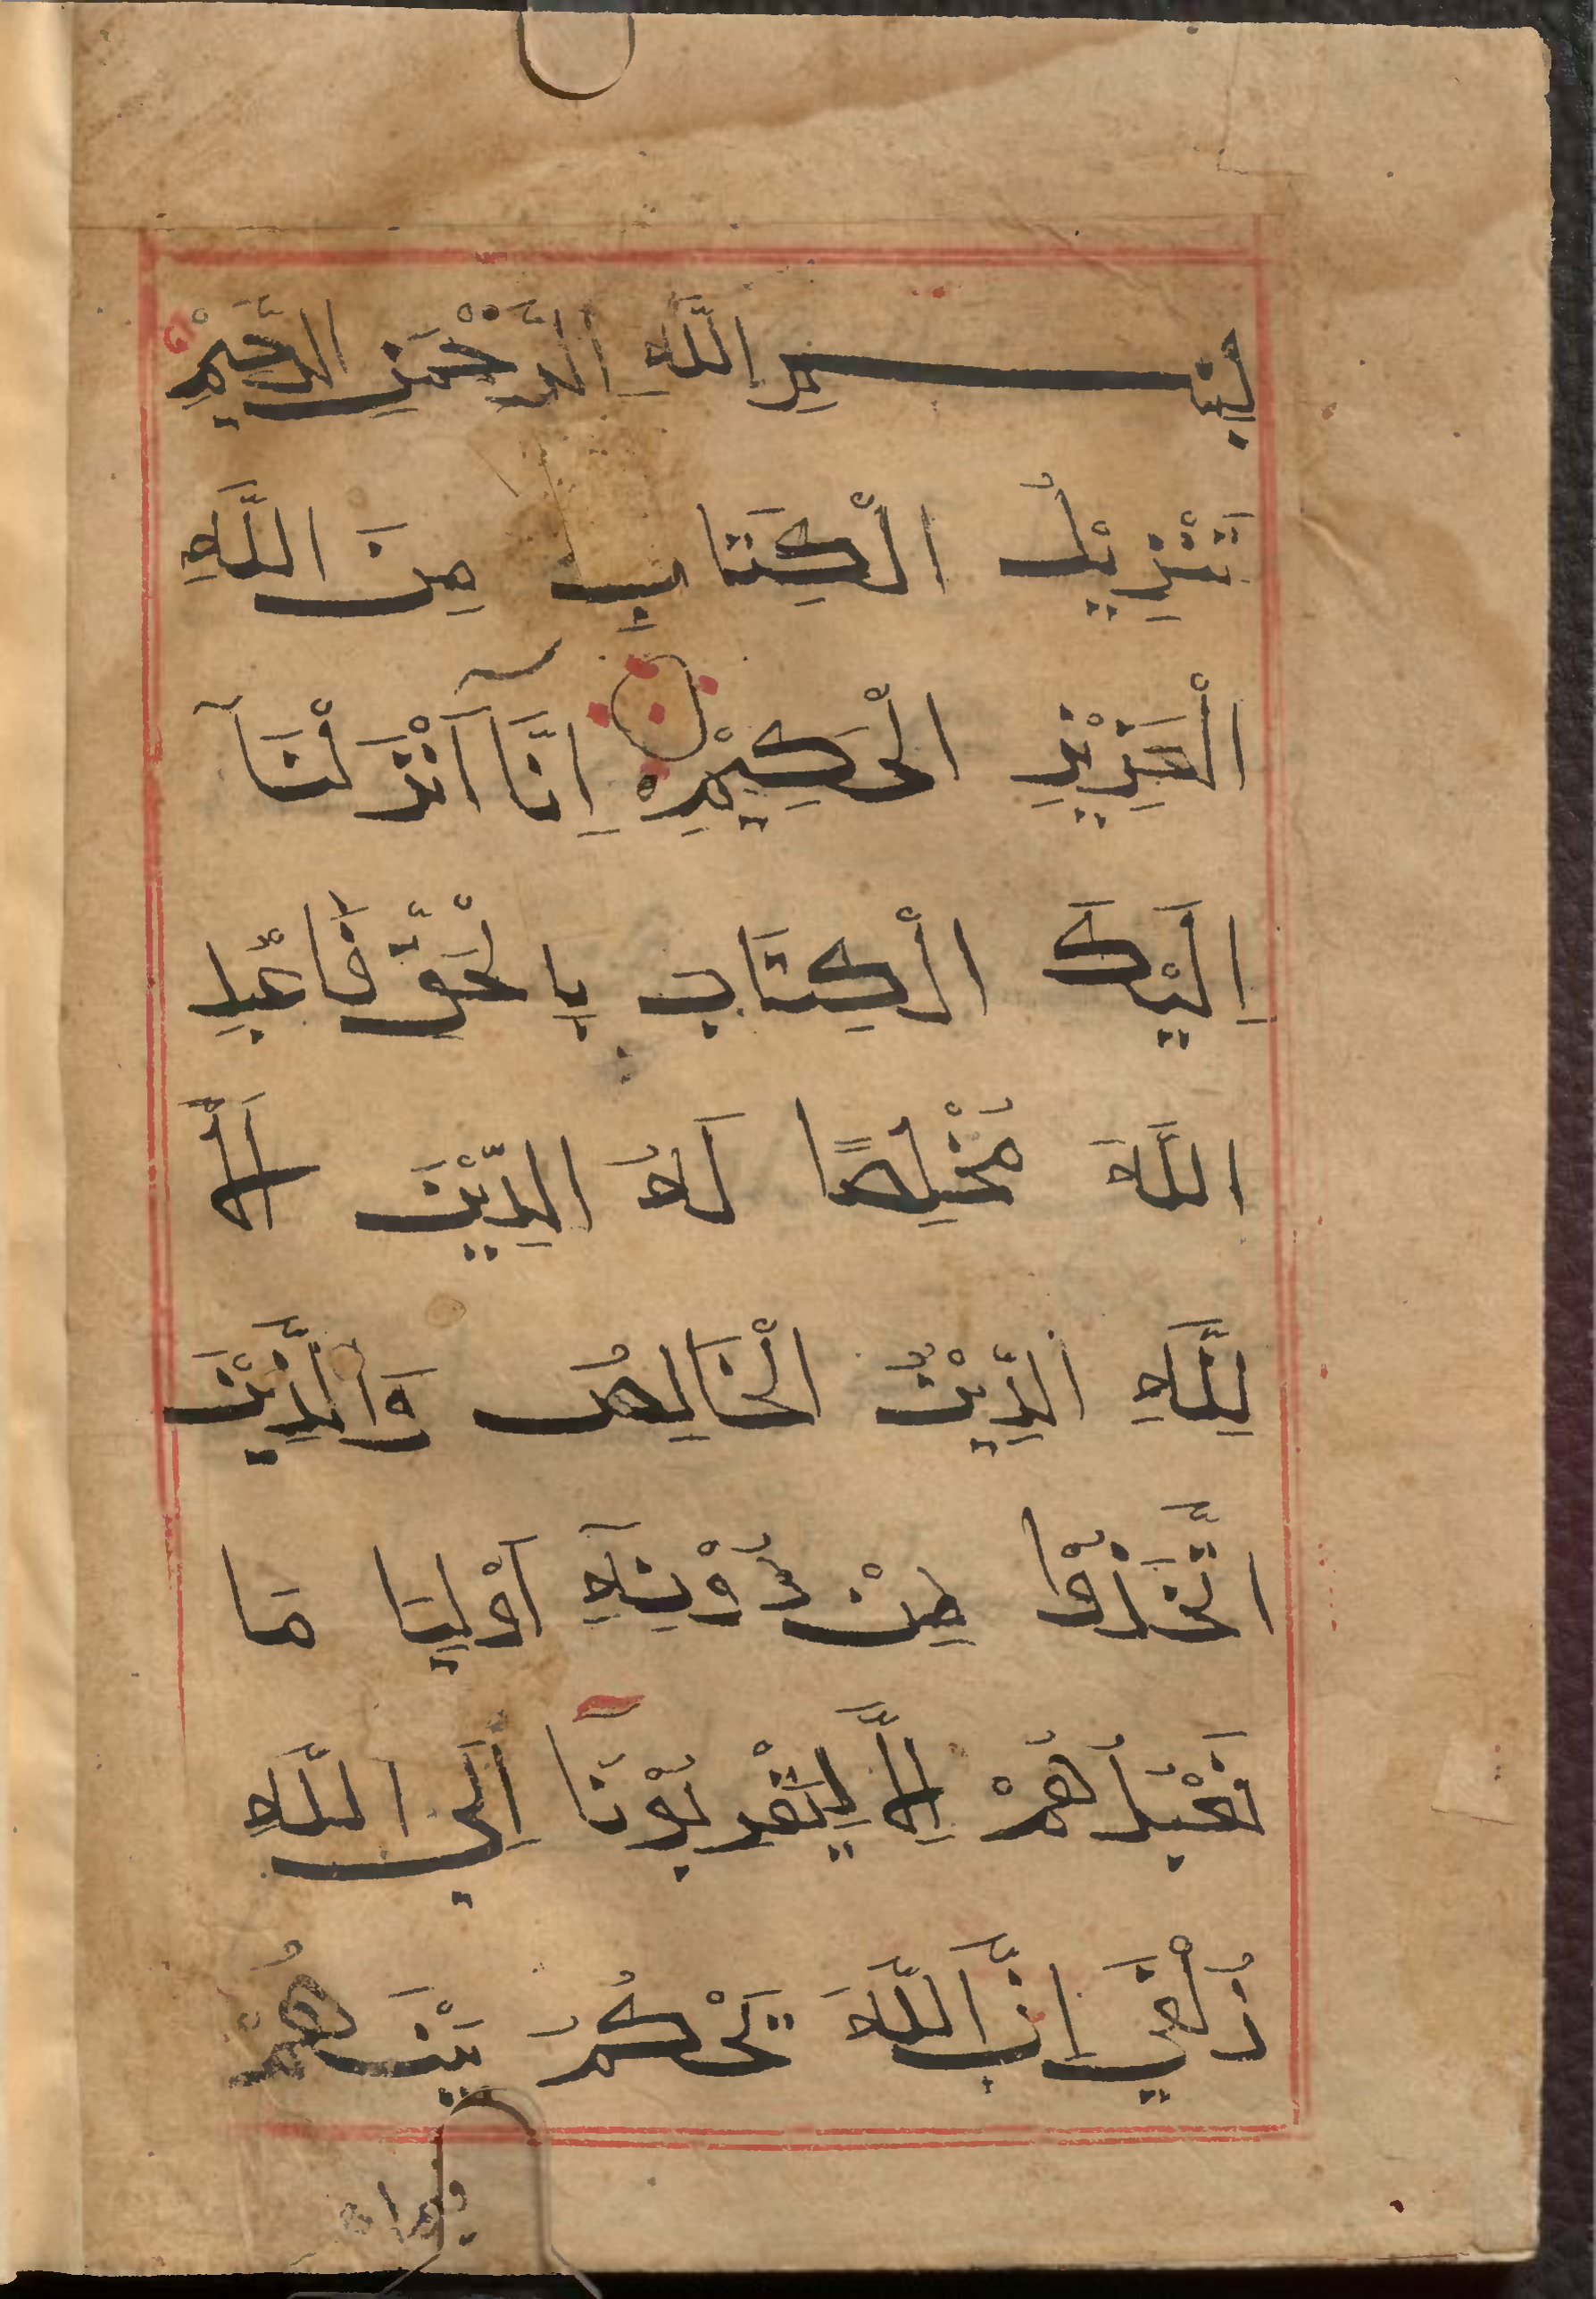 بِسْمِ اللَّهِ الرَّحْمَنِ الرَّحِيْمِ
تَنْزِيْلُ الْكِتَابِ مِنَ اللَّهِ
الْعَزِيْزِ الْحَكِيْمِ اِنَّا اَنْزَلْنَآ
اِلَيْكَ الْكِتَابَ بِالْحَقِّ فَاعْبُدِ
اللَّهَ مُخْلِصًا لَهُ الدِّيْنَ اَلَا
لِلَّهِ الدِّيْنُ الْخَالِصُ وَالَّذِيْنَ
اتَّخَذُوْا مِنْ دُوْنِهِ اَوْلِيَا مَا
نَعْبُدُهُمْ اِلَّا لِيُقَرِّبُوْنَا اِلَى اللَّهِ
زُلْفَي اِنَّ اللَّهَ يَحْكُمُ بَيْنَهُمْ